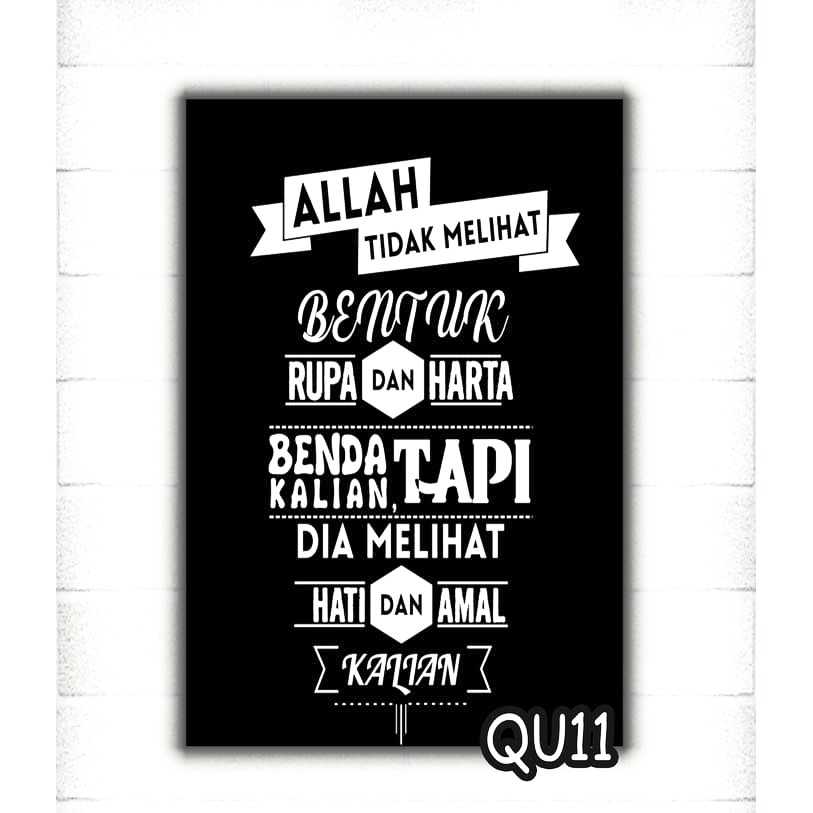 ALLAH
TIDAK MELIHAT
BENTUK
RUPA DAN HARTA
BENDA
KALIAN, TAPI
DIA MELIHAT
HATI DAN AMAL
KALIAN
QU11